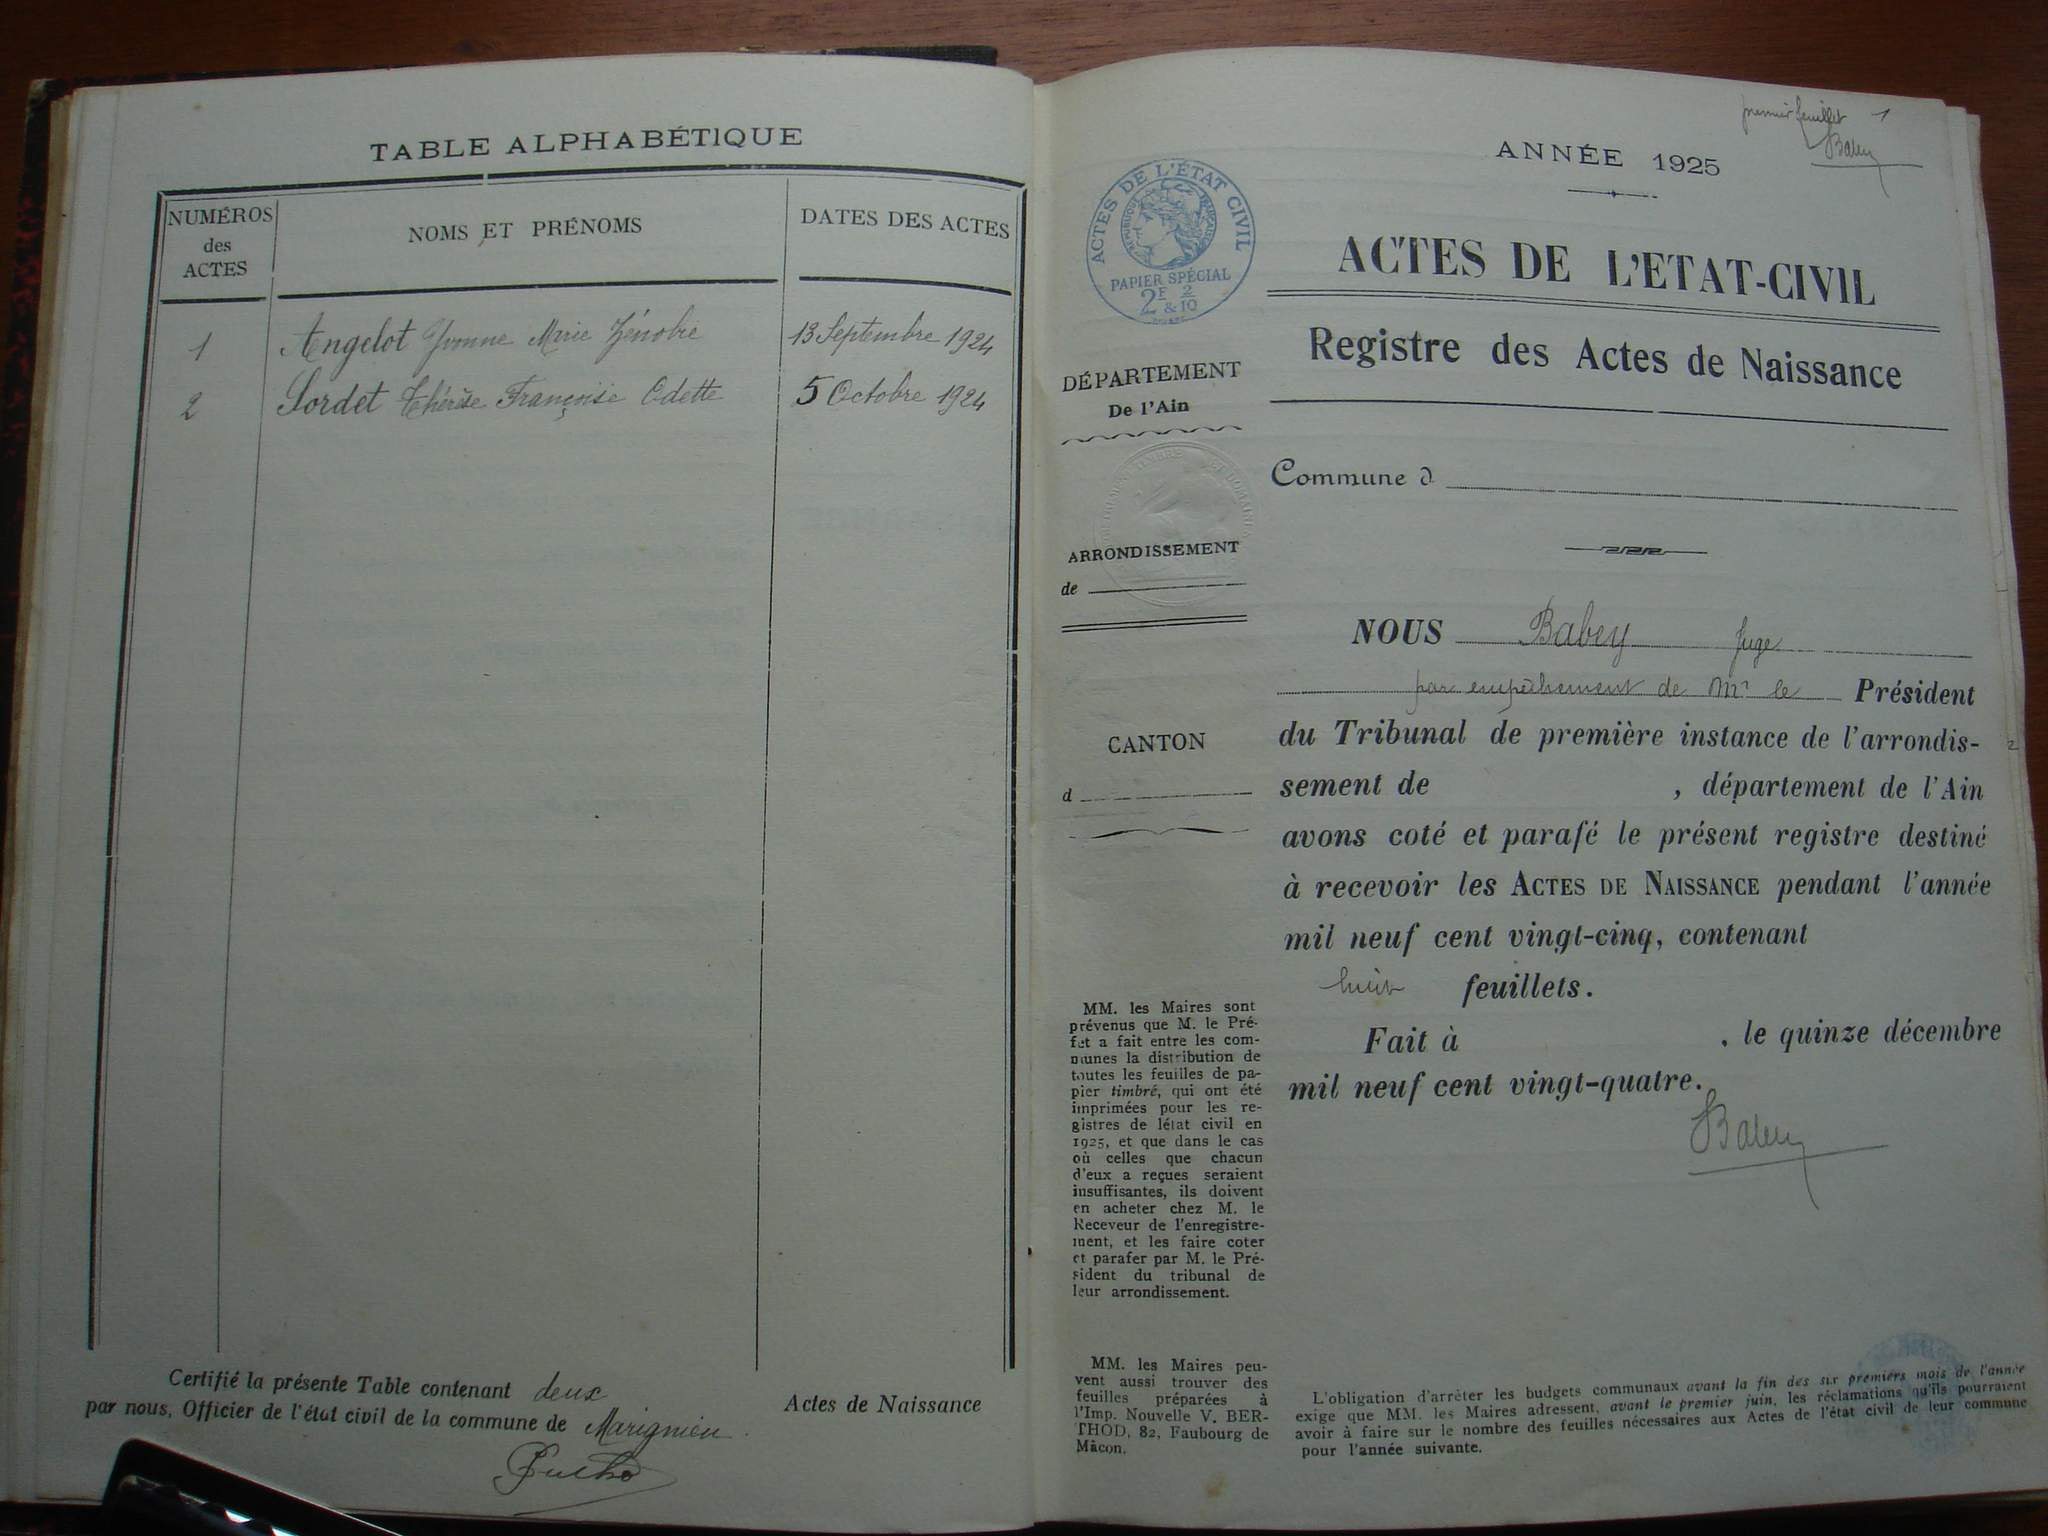 TABLE ALPHABÉTIQUE
NUMÉROS
des
ACTES
NOMS ET PRÉNOMS
DATES DES ACTES
1 Angelot Yvonne Marie Zénobie 13 Septembre 1924
2 Sordet Thérèse Françoise Odette 5 Octobre 1924
Certifié la présente Table contenant deux Actes de Naissance
par nous, Officier de l'état civil de la commune de Marignieu
premier feuillet 1
Babey
ANNÉE 1925
ACTES DE L'ÉTAT CIVIL
RÉPUBLIQUE FRANÇAISE
PAPIER SPÉCIAL
2F & 2/10
ACTES DE L'ETAT-CIVIL
Registre des Actes de Naissance
DÉPARTEMENT
De l'Ain
Commune d
ARRONDISSEMENT
de
CANTON
d
NOUS Babey Juge
par empêchement de Mr le Président
du Tribunal de première instance de l'arrondis-
sement de , département de l'Ain
avons coté et parafé le présent registre destiné
à recevoir les ACTES DE NAISSANCE pendant l'année
mil neuf cent vingt-cinq, contenant
huit feuillets.
Fait à , le quinze décembre
mil neuf cent vingt-quatre.
Babey
MM. les Maires sont
prévenus que M. le Pré-
fet a fait entre les com-
munes la distribution de
toutes les feuilles de pa-
pier timbré, qui ont été
imprimées pour les re-
gistres de létat civil en
1925, et que dans le cas
où celles que chacun
d'eux a reçues seraient
insuffisantes, ils doivent
en acheter chez M. le
Receveur de l'enregistre-
ment, et les faire coter
et parafer par M. le Pré-
sident du tribunal de
leur arrondissement.
MM. les Maires peu-
vent aussi trouver des
feuilles préparées à
l'Imp. Nouvelle V. BER-
THOD, 82, Faubourg de
Mâcon.
L'obligation d'arrêter les budgets communaux avant la fin des six premiers mois de l'année
exige que MM. les Maires adressent, avant le premier juin, les réclamations qu'ils pourraient
avoir à faire sur le nombre des feuilles nécessaires aux Actes de l'état civil de leur commune
pour l'année suivante.